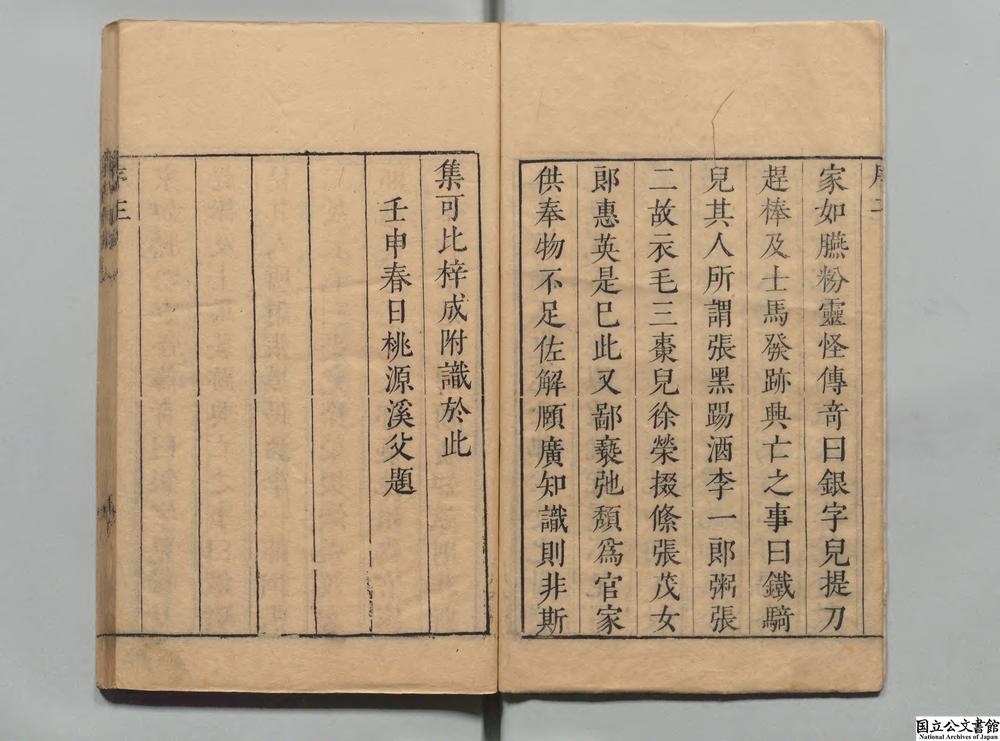 序二
家如臙粉靈怪傳奇曰銀字兒提刀
趕棒及士馬發跡興亡之事曰鐵騎
兒其人所謂張黑踢酒李一郎粥張
二故衣毛三棗兒徐榮掇絛張茂女
郎惠英是巳此又鄙褻弛頽爲官家
供奉物不足佐解頤廣知識則非斯
集可比梓成附識於此
壬申春日桃源溪父題
序三
国立公文書館
National Archives of Japan